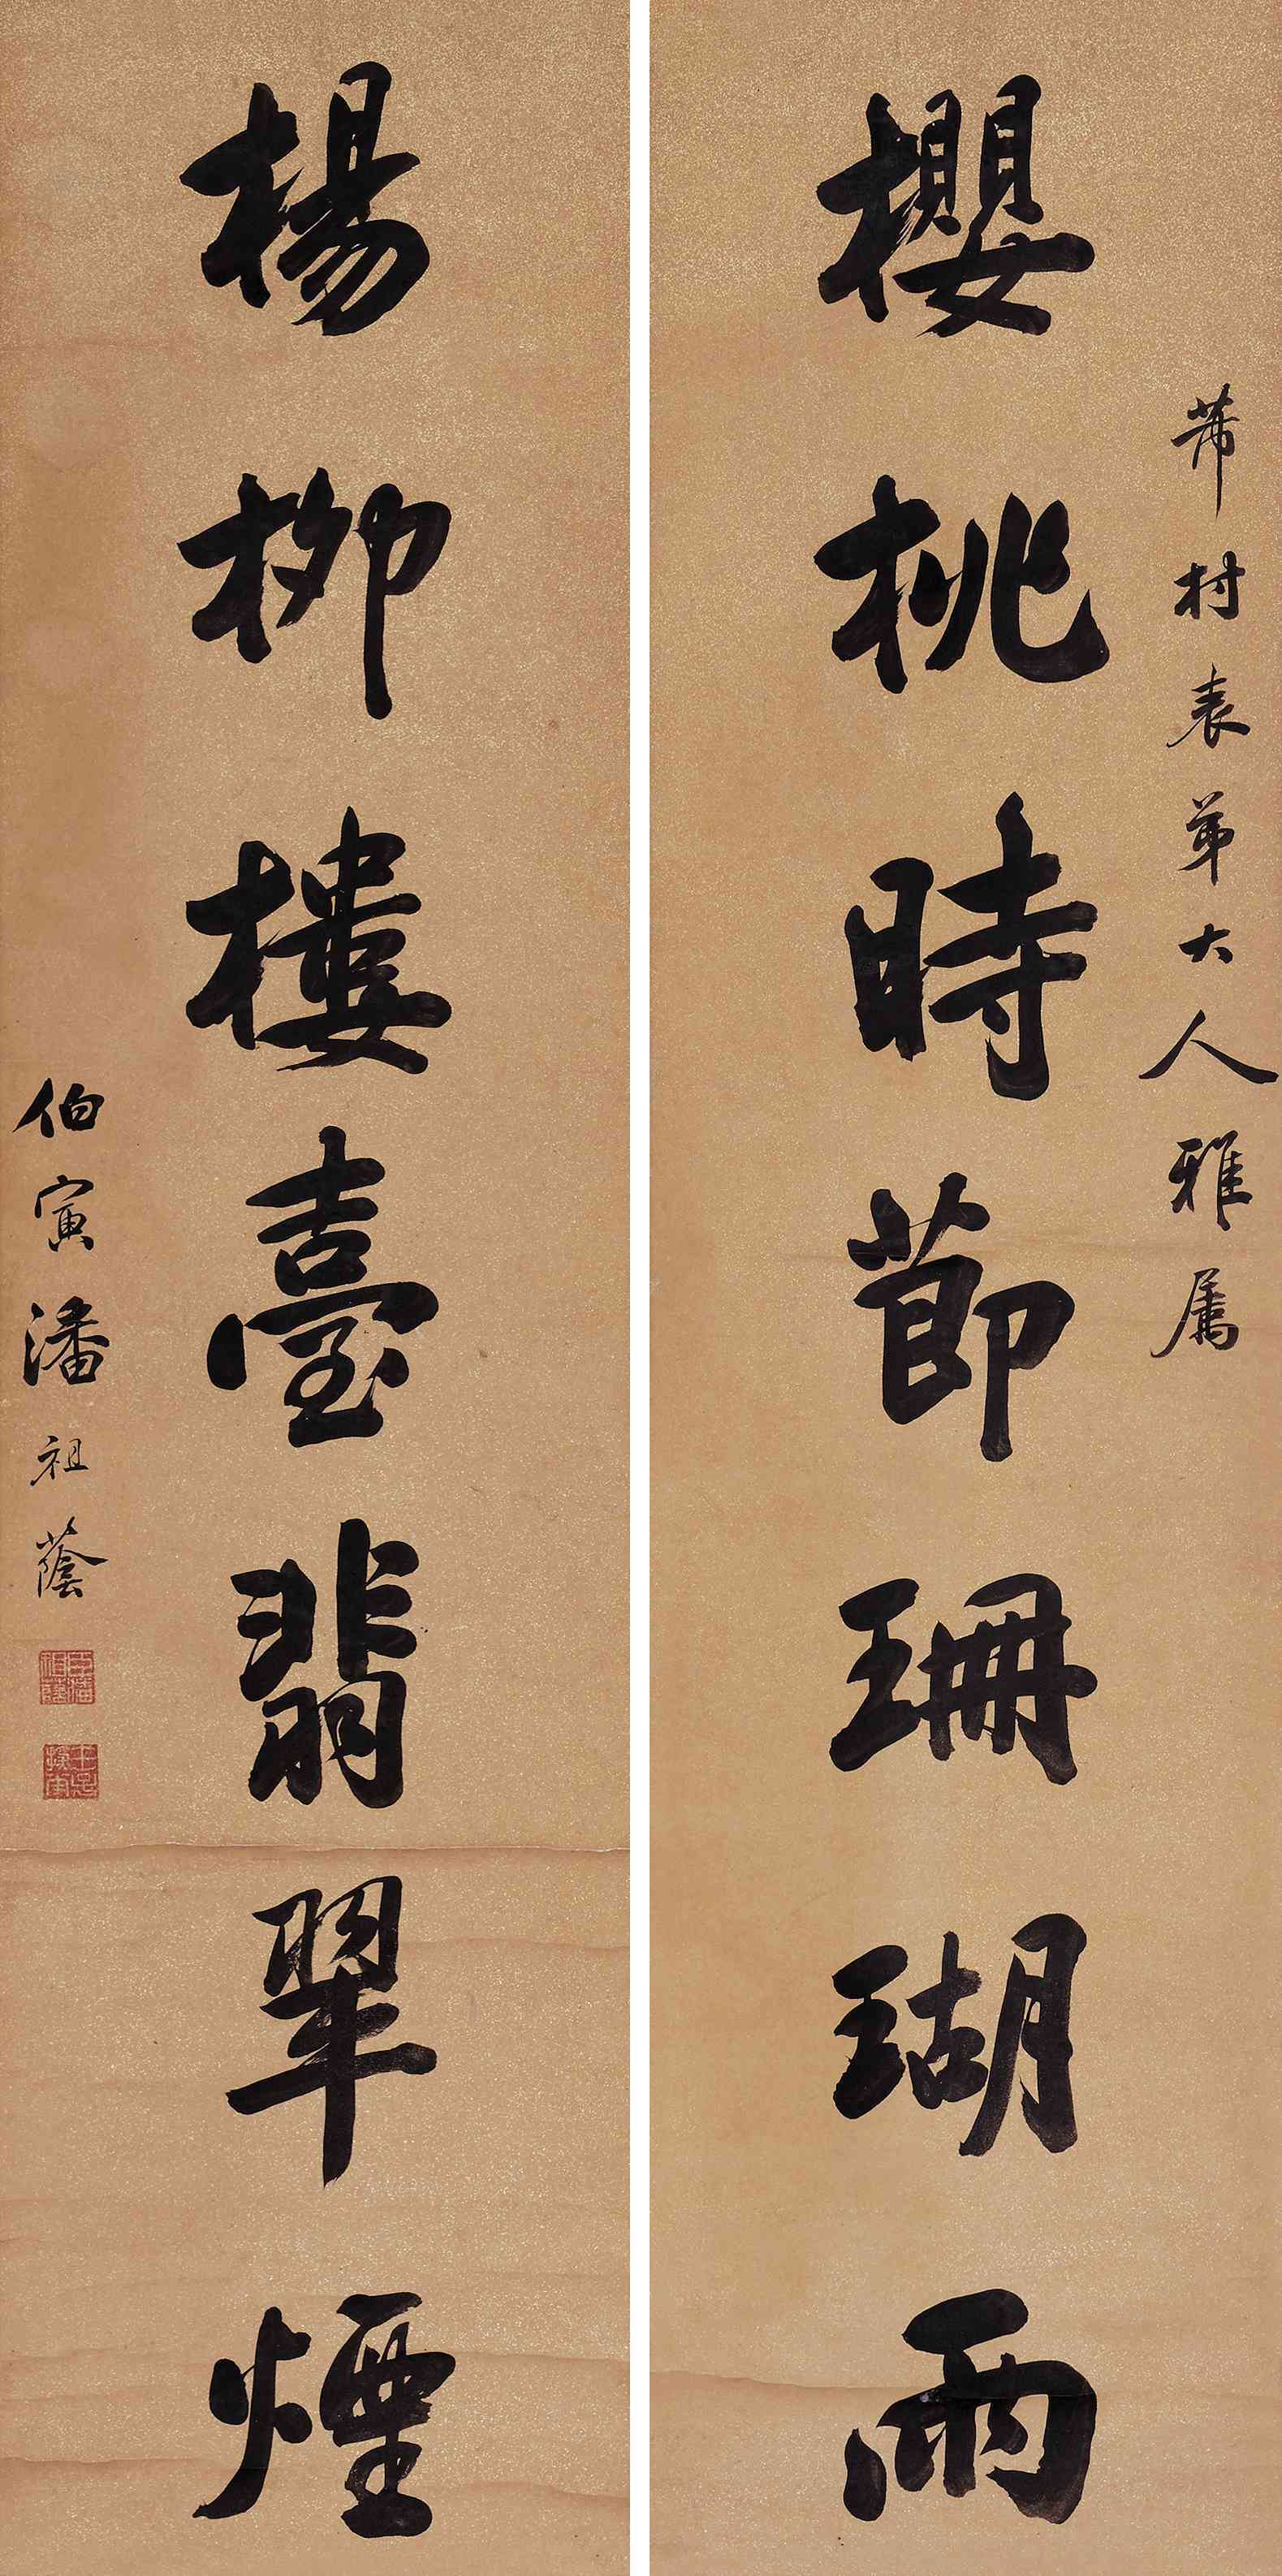 芾村表弟大人雅属
櫻桃時節珊瑚雨
楊柳樓臺翡翠煙
伯寅潘祖蔭